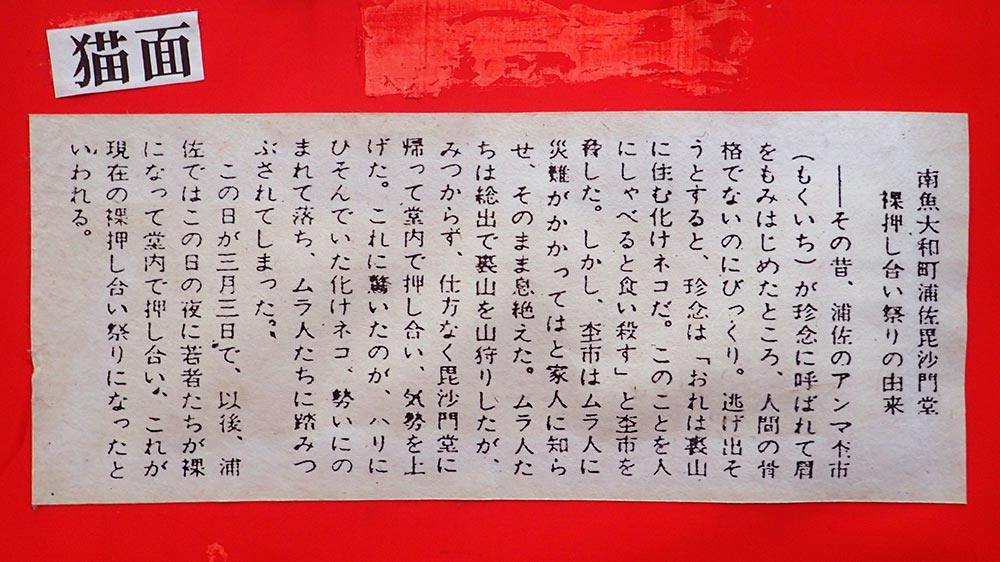 猫面
南魚大和町浦佐毘沙門堂
裸押し合い祭りの由来
――その昔、浦佐のアンマ杢市
(もくいち)が珍念に呼ばれて肩
をもみはじめたところ、人間の骨
格でないのにびっくり。逃げ出そ
うとすると、珍念は「おれは裏山
に住む化けネコだ。このことを人
にしゃべると食い殺す」と杢市を
脅した。しかし、杢市はムラ人に
災難がかかってはと家人に知ら
せ、そのまま息絶えた。ムラ人た
ちは総出で裏山を山狩りしたが、
みつからず、仕方なく毘沙門堂に
帰って堂内で押し合い、気勢を上
げた。これに驚いたのが、ハリに
ひそんでいた化けネコ。勢いにの
まれて落ち、ムラ人たちに踏みつ
ぶされてしまった。
この日が三月三日で、以後、浦
佐ではこの日の夜に若者たちが裸
になって堂内で押し合い、これが
現在の裸押し合い祭りになったと
いわれる。